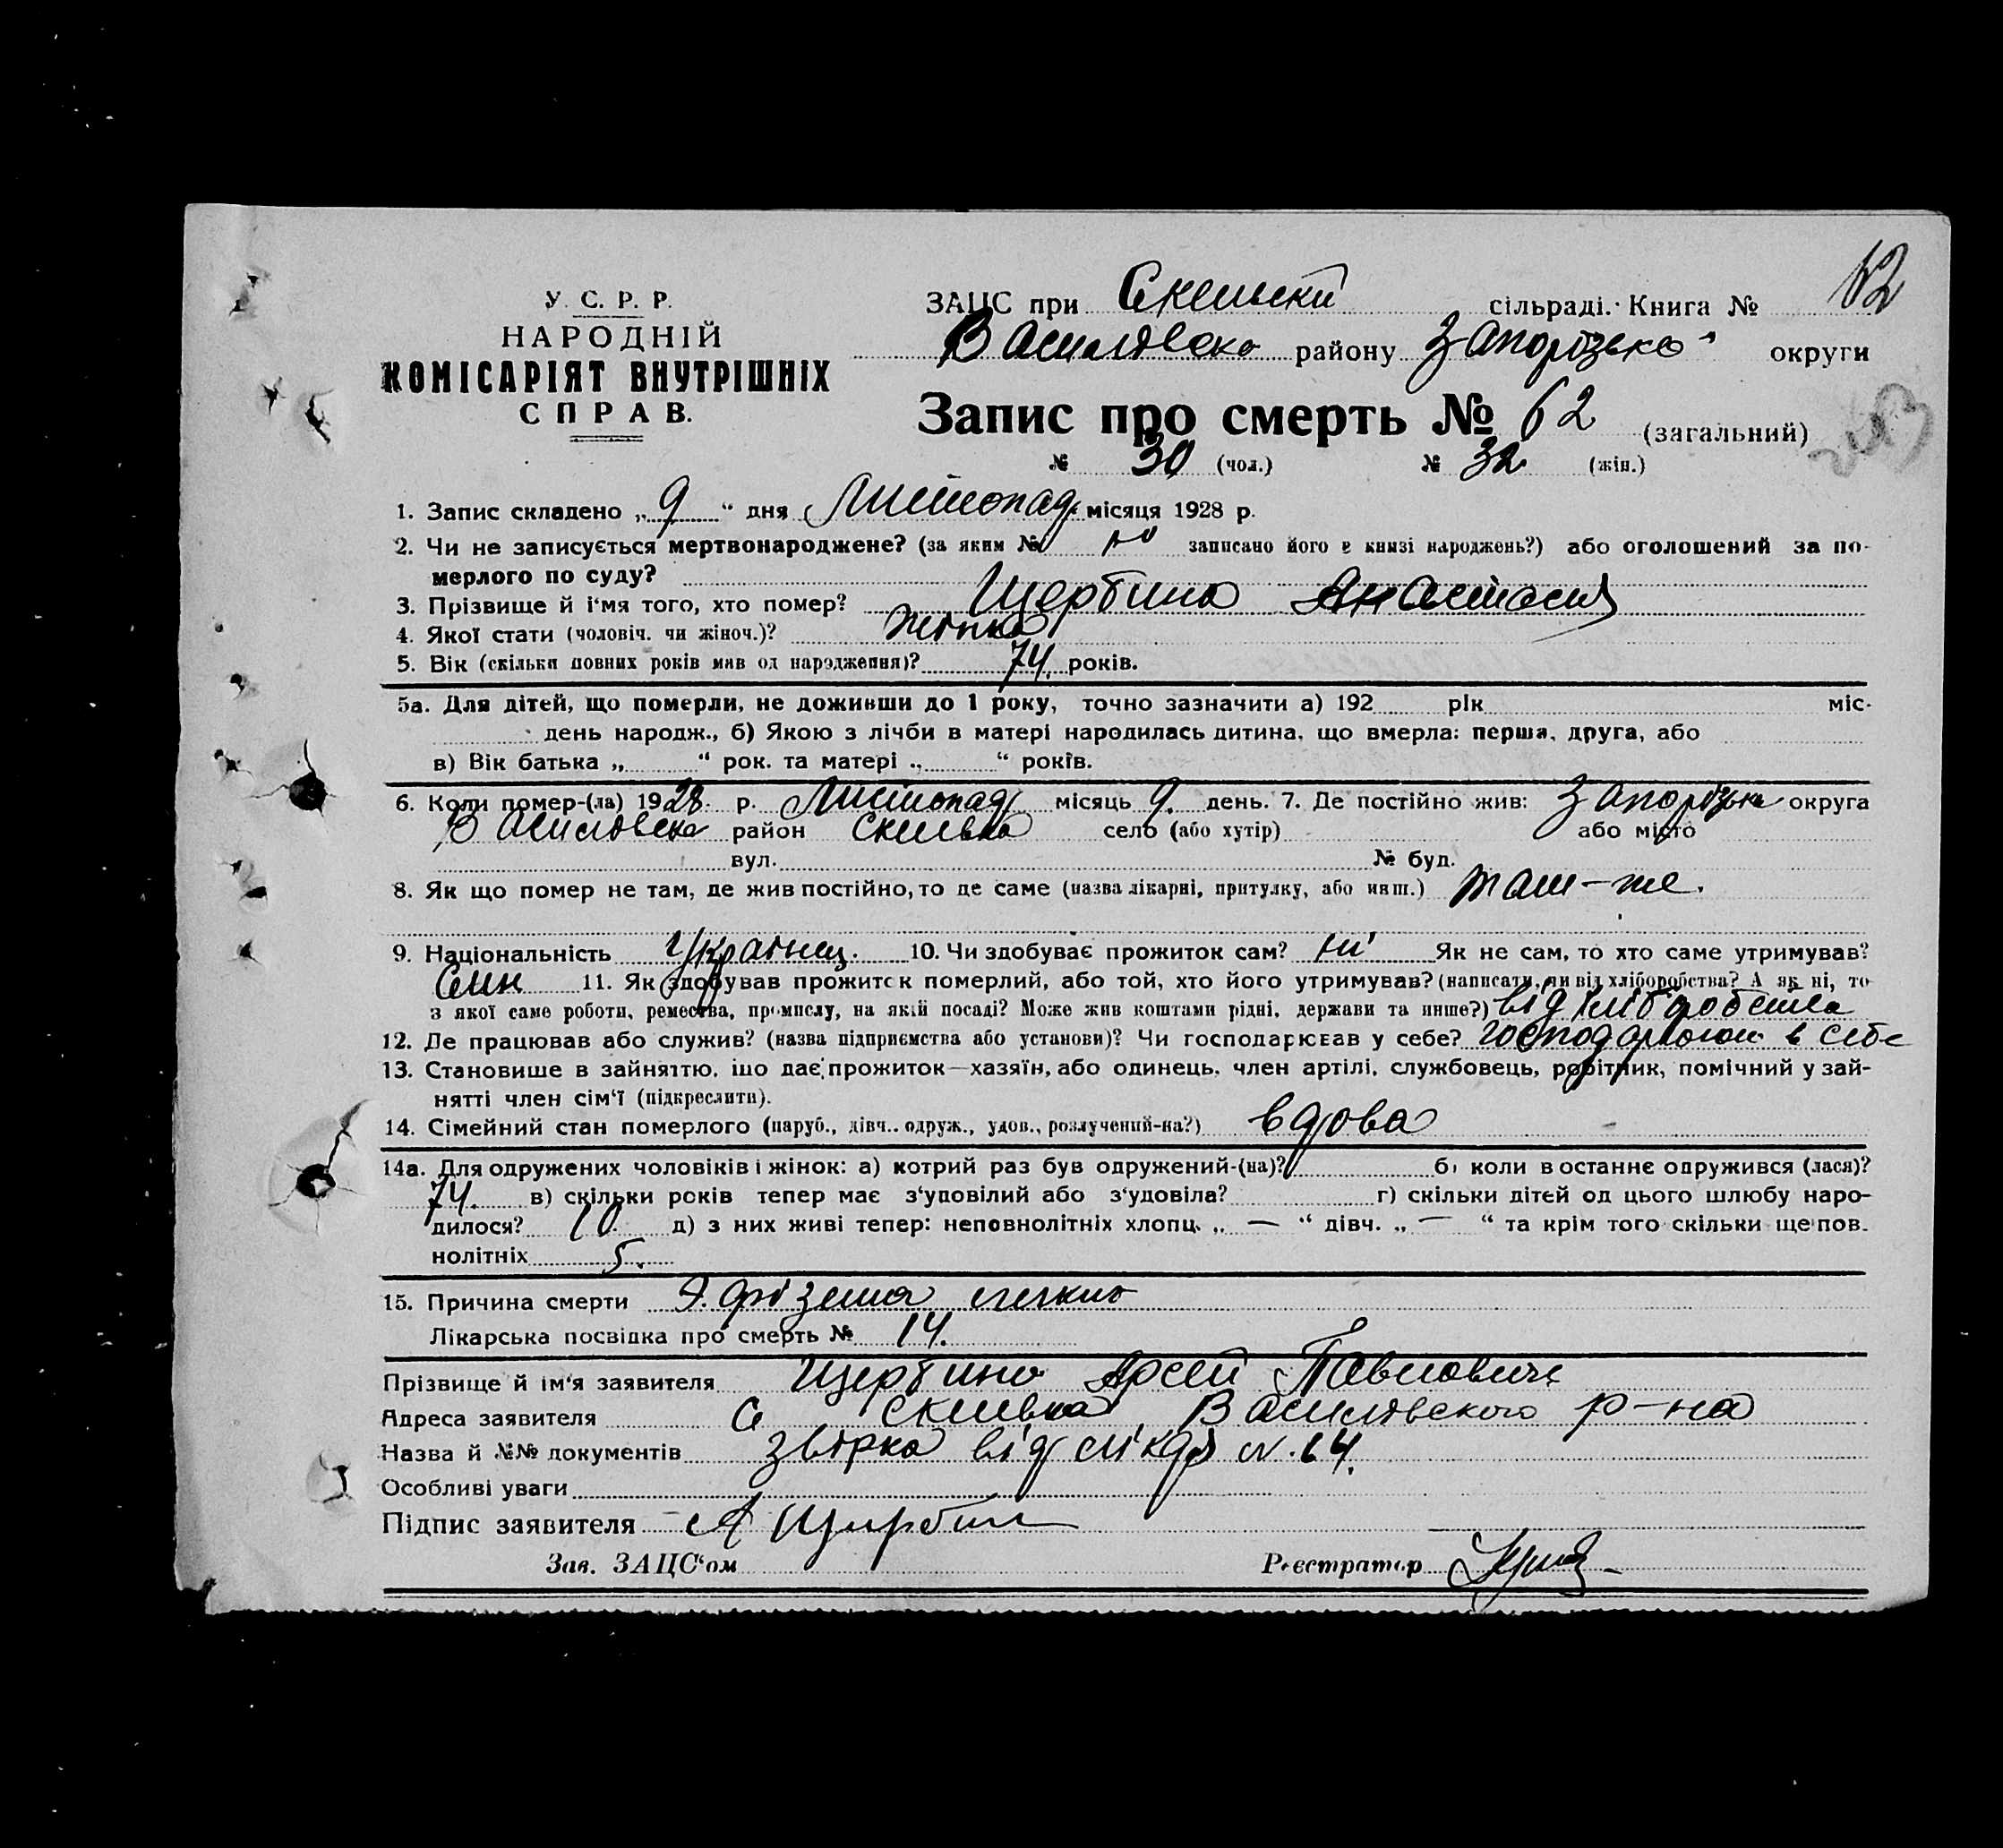 У. С. Р. Р.
НАРОДНІЙ
КОМІСАРІЯТ ВНУТРІШНІХ
СПРАВ.
ЗАЦС при Скельскй сільраді. Книга № 62
Василівско району Запорізько округи
Запис про смерть № 62 (загальний)
№ 30 (чол.) № 32 (жін.)
1. Запис складено „ 9 “ дня Листопад місяця 1928 р.
2. Чи не записується мертвонароджене? (за яким № записано його в книзі народжень?) або оголошений за по-
мерлого по суду?
3. Прізвище й і‘мя того, хто помер? Щербина Анастасия
4. Якої стати (чоловіч. чи жіноч.)? жінка
5. Вік (скільки повних років мав од народження)? 74. років.
5а. Для дітей, що померли, не доживши до 1 року, точно зазначити а) 192 рік міс.
день народж., б) Якою з лічби в матері народилась дитина, що вмерла: перша, друга, або
в) Вік батька „ “ рок. та матері „ “ років.
6. Коли помер-(ла) 1928. р. Листопад місяць 9. день. 7. Де постійно жив: Запорізька округа
Василівска район Скелька село (або хутір) або місто
вул. № буд.
8. Як що помер не там, де жив постійно, то де саме (назва лікарні, притулку, або инш.) там-же.
9. Національність Українец. 10. Чи здобуває прожиток сам? ні Як не сам, то хто саме утримував?
Син 11. Як здобував прожиток померлий, або той, хто його утримував? (написати, чи від хліборобства? А як ні, то
з якої саме роботи, ремества, промислу, на якій посаді? Може жив коштами рідні, держави та инше?) від хліборобства
12. Де працював або служив? (назва підприємства або установи)? Чи господарював у себе? в себе
13. Становище в зайняттю, що дає прожиток—хазяїн, або одинець, член артілі, службовець, робітник, помічний у зай-
нятті член сім‘ї (підкреслити).
14. Сімейний стан померлого (паруб., дівч., одруж., удов., розлучений-на?) вдова
14а. Для одружених чоловіків і жінок: а) котрий раз був одружений-(на)? б) коли в останнє одружився (лася)?
74. в) скільки років тепер має з‘уповілий або з‘удовіла? г) скільки дітей од цього шлюбу наро-
дилося? 10. д) з них живі тепер: неповнолітніх хлопц. „ — “ дівч. „ — “ та крім того скільки ще пов.
нолітніх 5.
15. Причина смерти
Лікарська посвідка про смерть № 14.
Прізвище й ім‘я заявителя Щербина Арсей Павлович
Адреса заявителя С Скелька Василівского р-на
Назва й №№ документів від N. 14.
Особливі уваги
Підпис заявителя А Щербин
Зав. ЗАЦС‘ом Реєстратор